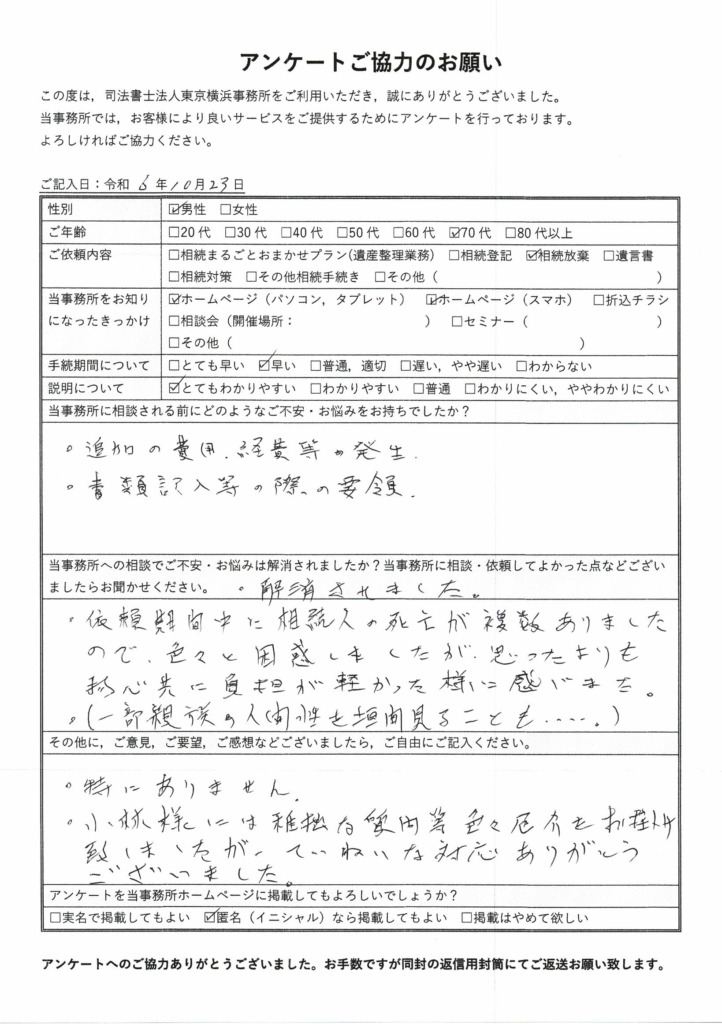 アンケートご協力のお願い
この度は，司法書士法人東京横浜事務所をご利用いただき，誠にありがとうございました。
当事務所では，お客様により良いサービスをご提供するためにアンケートを行っております。
よろしければご協力ください。
ご記入日：令和 6 年 10 月 23 日
性別 ☑男性 □女性
ご年齢 □20 代 □30 代 □40 代 □50 代 □60 代 ☑70 代 □80 代以上
ご依頼内容 □相続まるごとおまかせプラン(遺産整理業務) □相続登記 ☑相続放棄 □遺言書
□相続対策 □その他相続手続き □その他（ ）
当事務所をお知り ☑ホームページ（パソコン，タブレット） ☑ホームページ（スマホ） □折込チラシ
になったきっかけ □相談会（開催場所： ） □セミナー（ ）
□その他（ ）
手続期間について □とても早い ☑早い □普通，適切 □遅い，やや遅い □わからない
説明について ☑とてもわかりやすい □わかりやすい □普通 □わかりにくい，ややわかりにくい
当事務所に相談される前にどのようなご不安・お悩みをお持ちでしたか？
・追加の費用、経費等の発生.
・書類記入等の際の要領.
当事務所への相談でご不安・お悩みは解消されましたか？当事務所に相談・依頼してよかった点などござい
ましたらお聞かせください。 ・解消させました。
・依頼期間中に相続人の死亡が複数ありました
ので、色々と困惑しましたが、思ったよりも
心共に負担が軽かった様に感じました。
・(一部親族の人間性を垣間見ることも……。)
その他に，ご意見，ご要望，ご感想などございましたら，ご自由にご記入ください。
・特にありません.
・小林様には稚拙な質問等色々厄介をお掛け
致しましたが、ていねいな対応ありがとう
ございました。
アンケートを当事務所ホームページに掲載してもよろしいでしょうか？
□実名で掲載してもよい ☑匿名（イニシャル）なら掲載してもよい □掲載はやめて欲しい
アンケートへのご協力ありがとうございました。お手数ですが同封の返信用封筒にてご返送お願い致します。